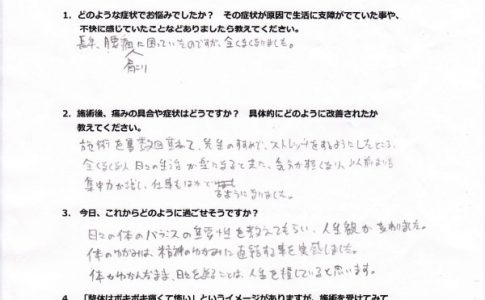 1. どのような症状でお悩みでしたか？ その症状が原因で生活に支障がでていた事や、
不快に感じていたことなどありましたら教えてください。
長年、腰痛に困っていたのですが、全くなくなりました。
肩こり
2. 施術後、痛みの具合や症状はどうですか？ 具体的にどのように改善されたか
教えてください。
施術を数回重ねて、先生のすすめで、ストレッチをするようにしたところ、
全くなくなり 日々の生活が 気分が軽くなり、以前よりも
集中力が増し、仕事も
るようになりました。
3. 今日、これからどのように過ごせそうですか？
日々の体のバランスの重要性を教えてもらい、人生観が変わりました。
体のゆがみは、精神のゆがみに直結する事を実感しました。
体がゆがんだまま、日々を送ることは、人生を損していると思います。
4. 「整体はボキボキ痛くて怖い」というイメージがありますが、施術を受けてみて